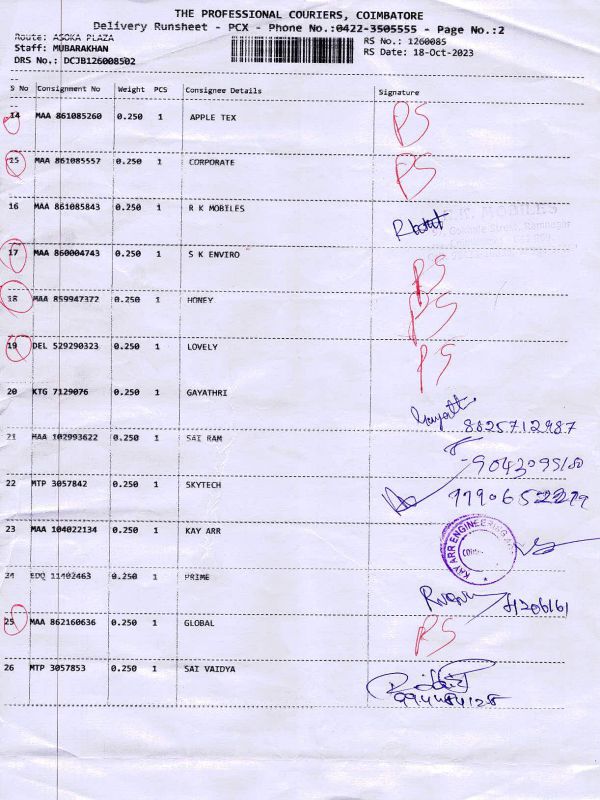 THE PROFESSIONAL COURIERS, COIMBATORE
Delivery Runsheet - PCX - Phone No.:0422-3505555 - Page No.:2
Route: ASOKA PLAZA
RS No.: 1260085
Staff: MUBARAKHAN
RS Date: 18-Oct-2023
DRS No.: DCJB126008502
S No Consignment No Weight PCS Consignee Details Signature
14 MAA 861085260 0.250 1 APPLE TEX PS
15 MAA 861085557 0.250 1 CORPORATE PS
16 MAA 861085843 0.250 1 R K MOBILES
MOBILES
17 MAA 860004743 0.250 1 S K ENVIRO PS
18 MAA 859947372 0.250 1 HONEY PS
19 DEL 529290323 0.250 1 LOVELY PS
20 KTG 7129076 0.250 1 GAYATHRI
8825712987
21 MAA 102993622 0.250 1 SAI RAM
22 MTP 3057842 0.250 1 SKYTECH
23 MAA 104022134 0.250 1 KAY ARR
KAY ARR ENGINEERING
24 EDQ 11402463 0.250 1 PRIME
25 MAA 862160636 0.250 1 GLOBAL PS
26 MTP 3057853 0.250 1 SAI VAIDYA